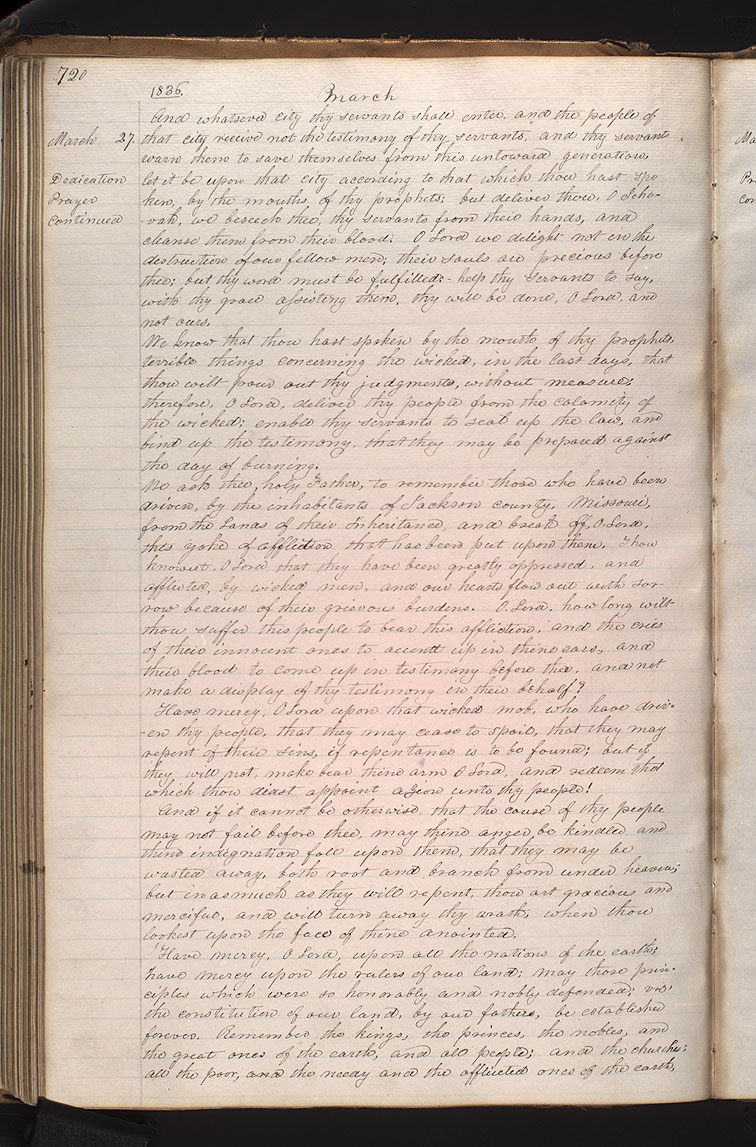 720
1836.
March
And whatseve city thy servants shall enter. and the people of
March 27. that city receive not the testimony of thy servants, and thy servants
warn them to save themselves from this untoward generation,
Dedication let it be upon that city according to that which thou hast spo
Prayer ken, by the mouths, of thy prophets; but deliver thou, O Jeho-
continued -vah, we beseech thee, thy servants from their hands, and
cleanse them from their blood. O Lord we delight not in the
destruction of our fellow men; their souls are precious before
thee; but thy word must be fulfilled:- help thy servants to say,
with thy grace assisting them, thy will be done, O Lord, and
not ours.
We know that thou hast spoken by the mouth of thy prophets,
terrible things concerning the wicked, in the last days, that
thou wilt pour out thy judgments, without measure;
therefore, O Lord, deliver thy people from the calamity of
the wicked; enable thy servants to seal up the law, and
bind up the testimony, that they may be prepared against
the day of burning.
We ask thee, holy Father, to remember those who have been
driven, by the inhabitants of Jackson county, Missouri,
from the lands of their inheritance, and break off, O Lord,
this yoke of affliction, that has been put upon them. Thou
knowest, O Lord that they have been greatly oppressed, and
afflicted, by wicked men, and our hearts flow out with sor-
row because of their grievous burdens. O Lord, how long wilt
thou suffer this people to bear this affliction, and the cries
of their innocent ones to ascend up in thine ears, and
their blood to come up in testimony before thee, and not
make a display of thy testimony in their behalf?
Have mercy, O Lord upon that wicked mob, who have driv-
-en thy people, that they may cease to spoil, that they may
repent of their sins, if repentance is to be found; but if
they will not, make bear thine arm O Lord, and redeem that
which thou didst appoint a Zion unto thy people!
And if it cannot be otherwise, that the cause of thy people
may not fail before thee, may thine anger be kindled and
thine indignation fall upon them, that they may be
wasted away, both root and branch from under heaven;
but in as much as they will repent, thou art gracious and
merciful, and will turn away thy wrath, when thou
lookest upon the face of thine anointed.
Have mercy, O Lord, upon all the nations of the earth;
have mercy upon the rulers of our land; may those prin-
ciples which were so honorably and nobly defended; viz:
the constitution of our land, by our fathers, be established
forever. Remember the kings, the princes, the nobles, and
the great ones of the earth, and all people; and the churches;
all the poor, and the needy and the afflicted ones of the earth,
Ma
Pr
Con